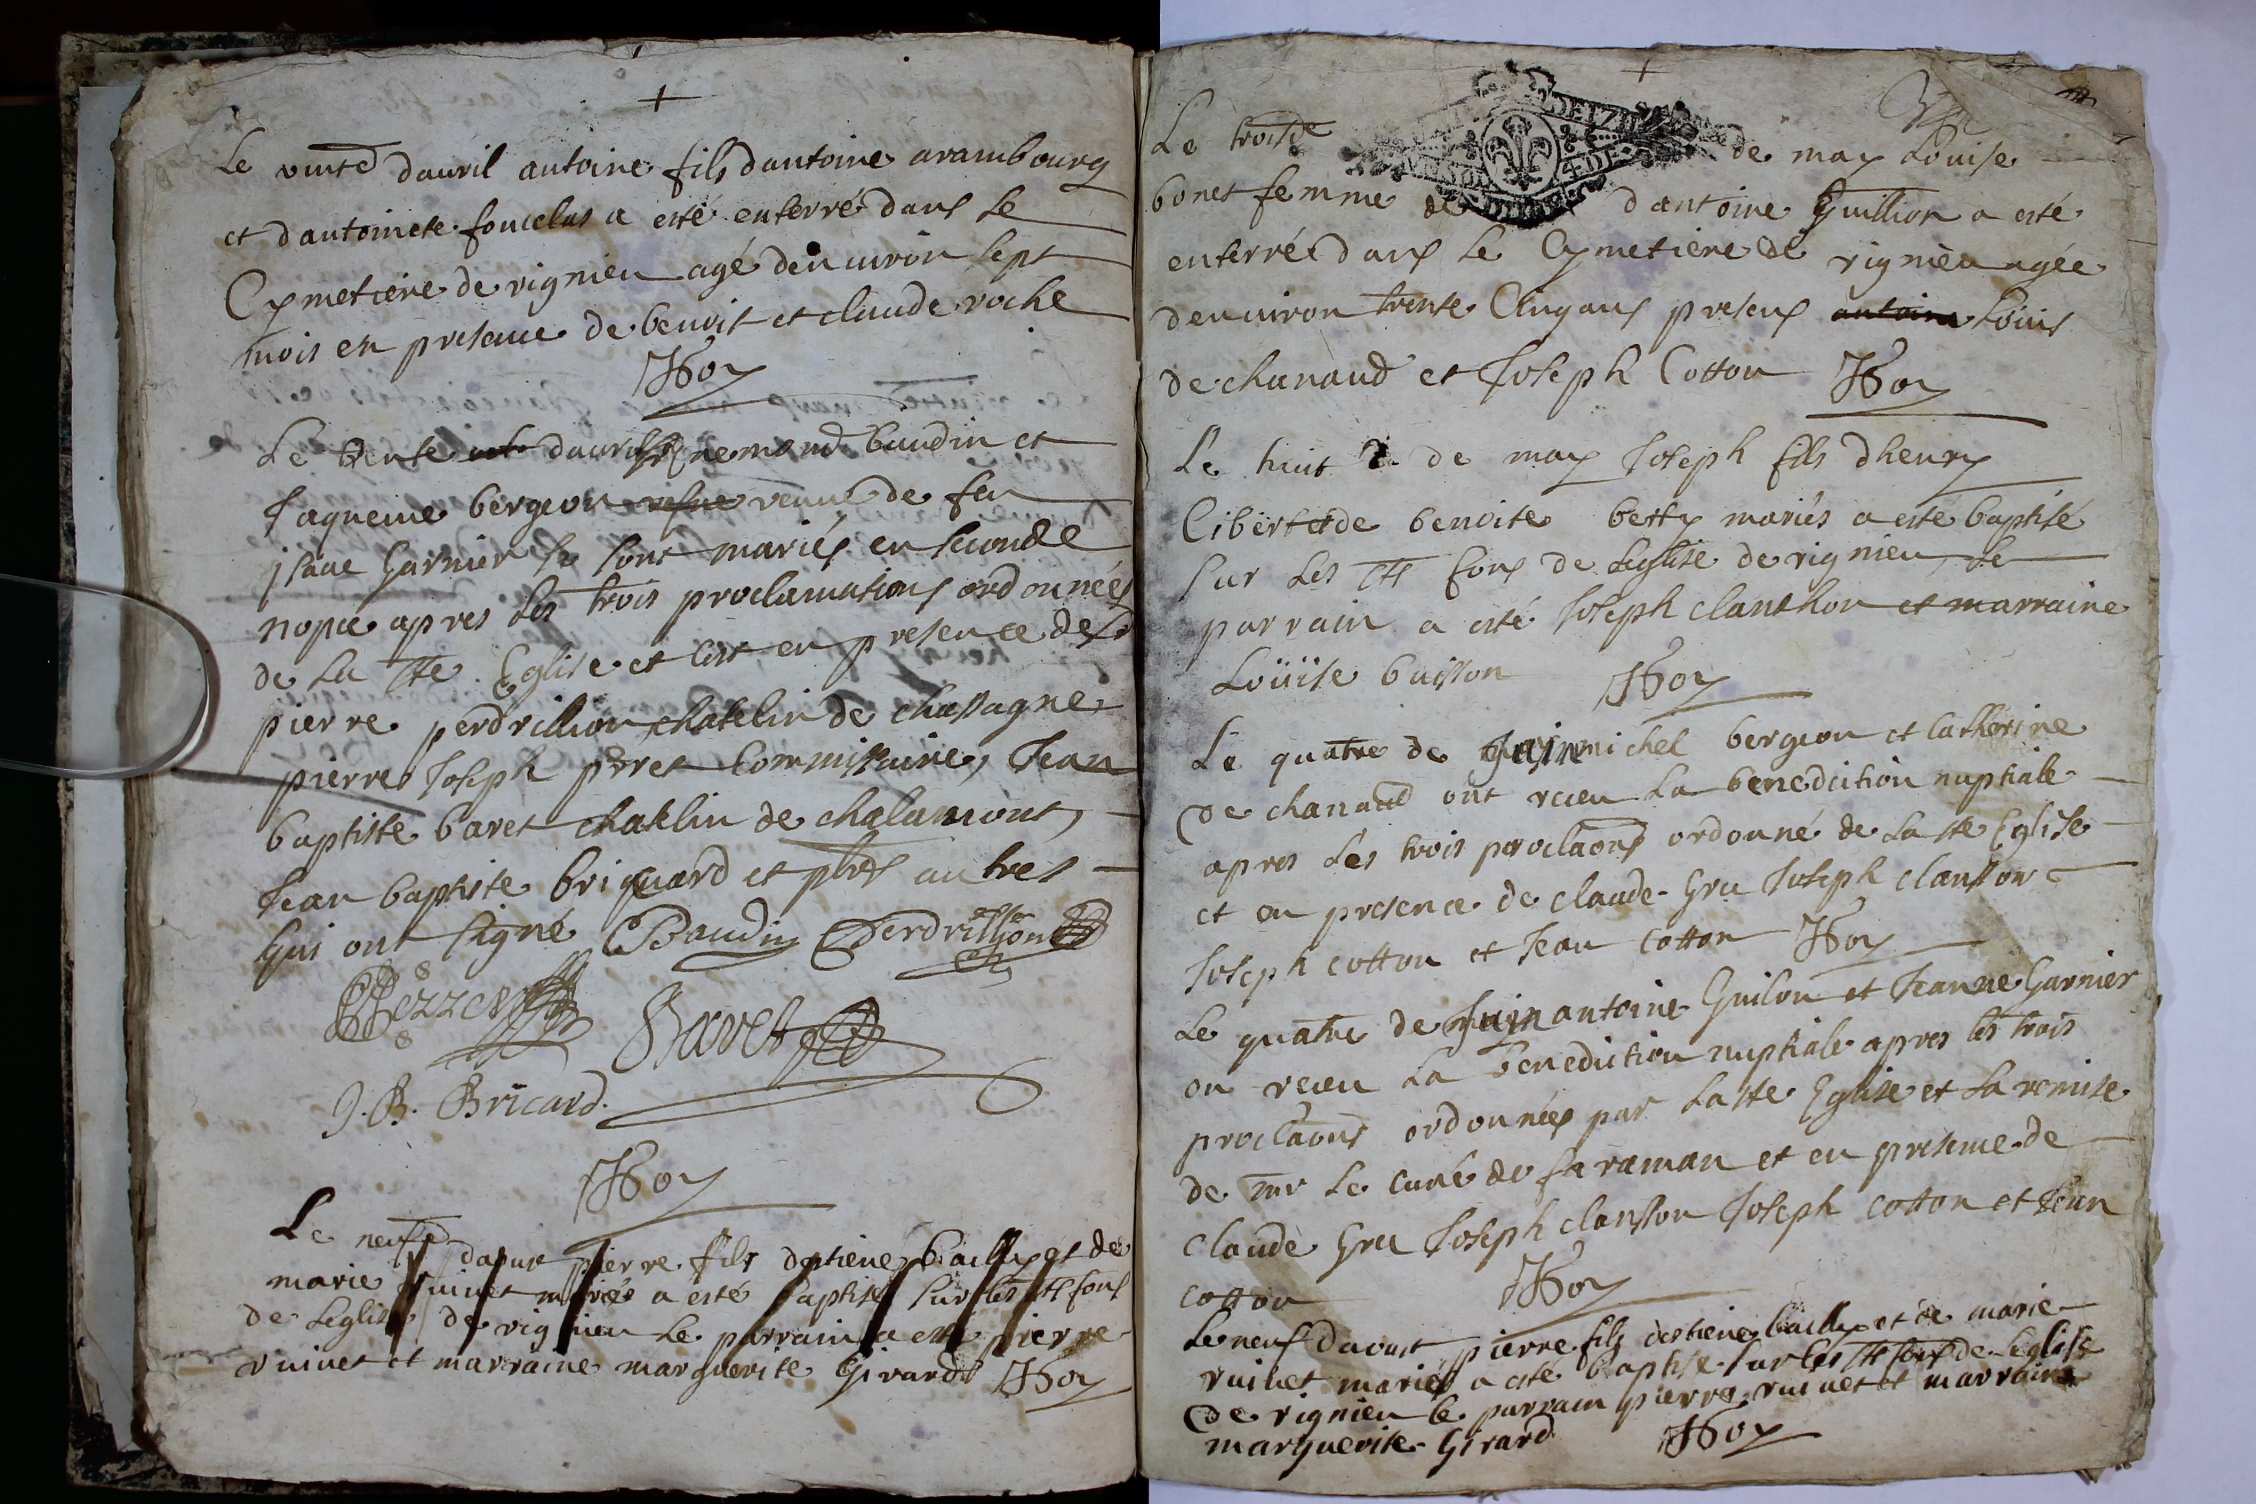 Le vint d davril antoine fils dantoine arambourg
et dantoinete foucelas a esté enterré dans le
Cymetiere de rignieu agé denuiron sept
mois en presence de benoit et claude roche
JRoy
Le trente davril Enemond baudin et
Jaqueme bergeon veuue de feu
jsaac Garnier se sont mariés en seconde
nopce apres les trois proclamations ordonnées
de la Ste Eglise et cest en presence de
pierre perdrillion chatelin de chassagne
pierre Joseph perret Commissaire, Jean
baptiste baret chatelin de chalamont,
Jean baptiste briquard et plrs autres
qui ont signé Baudin Perdrillion
Bavet
J. B. Bricard.
JRoy
Le neuf d daoust pierre fils destiene bailly et de
marie ruiuet mariés a esté baptisé sur les Sts fons
de leglise de rignieu le parrain a esté pierre
ruiuet et marraine marguerite Girard JRoy
Le trois de de may Louise
bonet femme de dantoine Guillion a esté
enterrée dans le Cymetiere de rignieu agée
denuiron trente Cinq ans presens antoine Louis
de chanaud et Joseph Cotton JRoy
Le huit d de may Joseph fils dhenry
Cibert et de benoite berty mariés a esté baptisé
sur les Sts fons de leglise de rignieu, le
parrain a esté Joseph clanthon et marraine
Loüise buisson JRoy
Le quatre de Juin michel bergeon et Catherine
de chanaud ont receu la benediction nuptiale
apres les trois proclaons ordonné de la ste Eglise
et en presence de claude Gru Joseph clanston
Joseph cotton et Jean cotton JRoy
Le quatre de Juin antoine Guilon et Jeanne Garnier
on receu la benediction nuptiale apres les trois
proclaons ordonnées par la ste Eglise et la remise
de mr le curé de faraman et en presence de
claude Gru Joseph clanston Joseph cotton et Jean
cotton JRoy
Le neuf daoust pierre fils destiene bailly et de marie
ruiuet mariés a esté baptisé sur les Sts fons de leglise
de rignieu le parrain pierre ruiuet et marraine
marguerite Girard JRoy